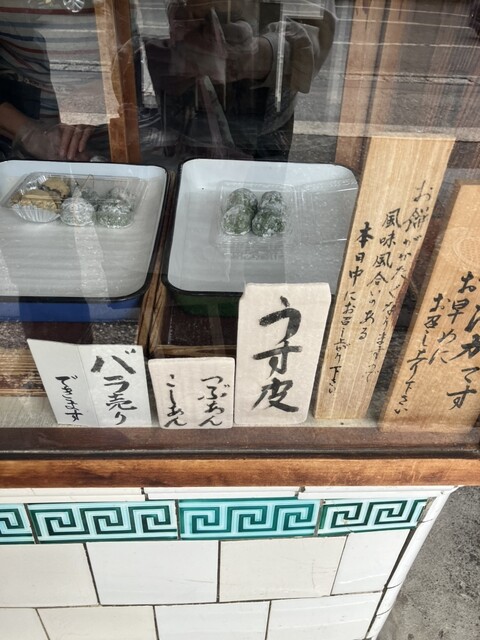 お早めに
お召し上り下さい
お餅がかたくなりますので
風味風合いのある
本日中にお召し上り下さい
うす皮
つぶあん
こしあん
バラ売り
できます